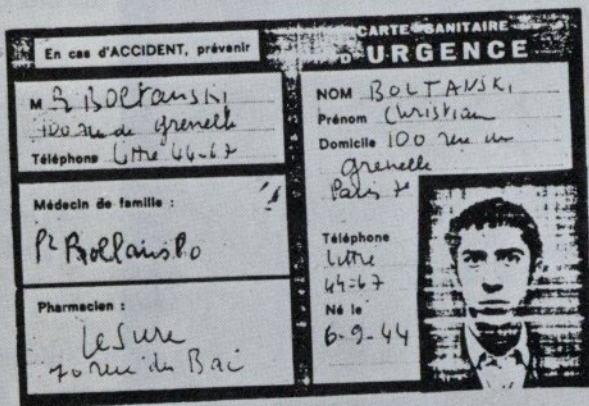 En cas d'ACCIDENT, prévenir
M Boltanski
100 rue de grenelle
Téléphone Littre 44-67
Médecin de famille :
Pharmacien :
LeSure
70 rue du Bac
CARTE SANITAIRE
D'URGENCE
NOM BOLTANSKI
Prénom Christian
Domicile 100 rue de
grenelle
Paris 7e
Téléphone
Littre
44-67
Né le
6-9-44